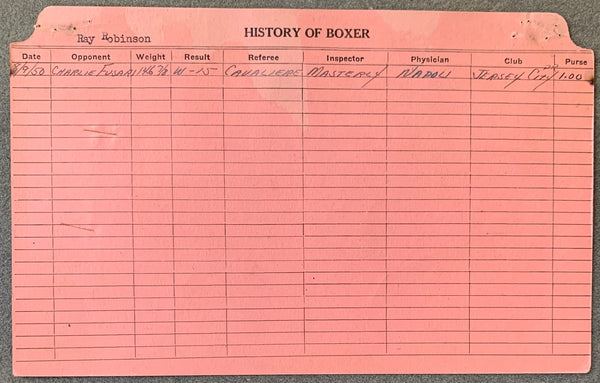 Ray Robinson
HISTORY OF BOXER
Date Opponent Weight Result Referee Inspector Physician Club Purse
8/9/50 CHARLIE FUSARI 146 3/4 W-15 CAVALIERE MASTERLY NAPOLI JERSEY CITY 1.00